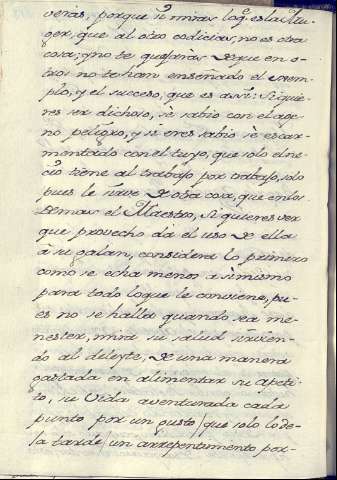 veras, porque si miras loq.e es la Mu-
ger, que al otro codicias, no es otra
cosa; y no te quejarás de que en o-
tros no te han enseñado el exem-
plo, y el succeso, que es assi: Si quie-
res ser dichoso, sè sabio con el age-
no peligro, y si eres sabio sè escar-
montado con el tuyo, que solo el ne-
cio tiene al trabajo por trabajo, solo
pues le sirve de otra cosa, que en los
demas el Maestro, Si quieres ver
que provecho dà el uso de ella
à su galan, considera lo primero
como se echa menos a sì mismo
para todo loque le conviene, pu-
es no se halla quando sea me-
nester, mira su salud sirvien-
do al deleyte, de una manera
gastada en alimentar su apeti-
to, su Vida aventurada cada
punto por un gusto (que solo lo de-
la tarde) un arrepentimiento por-